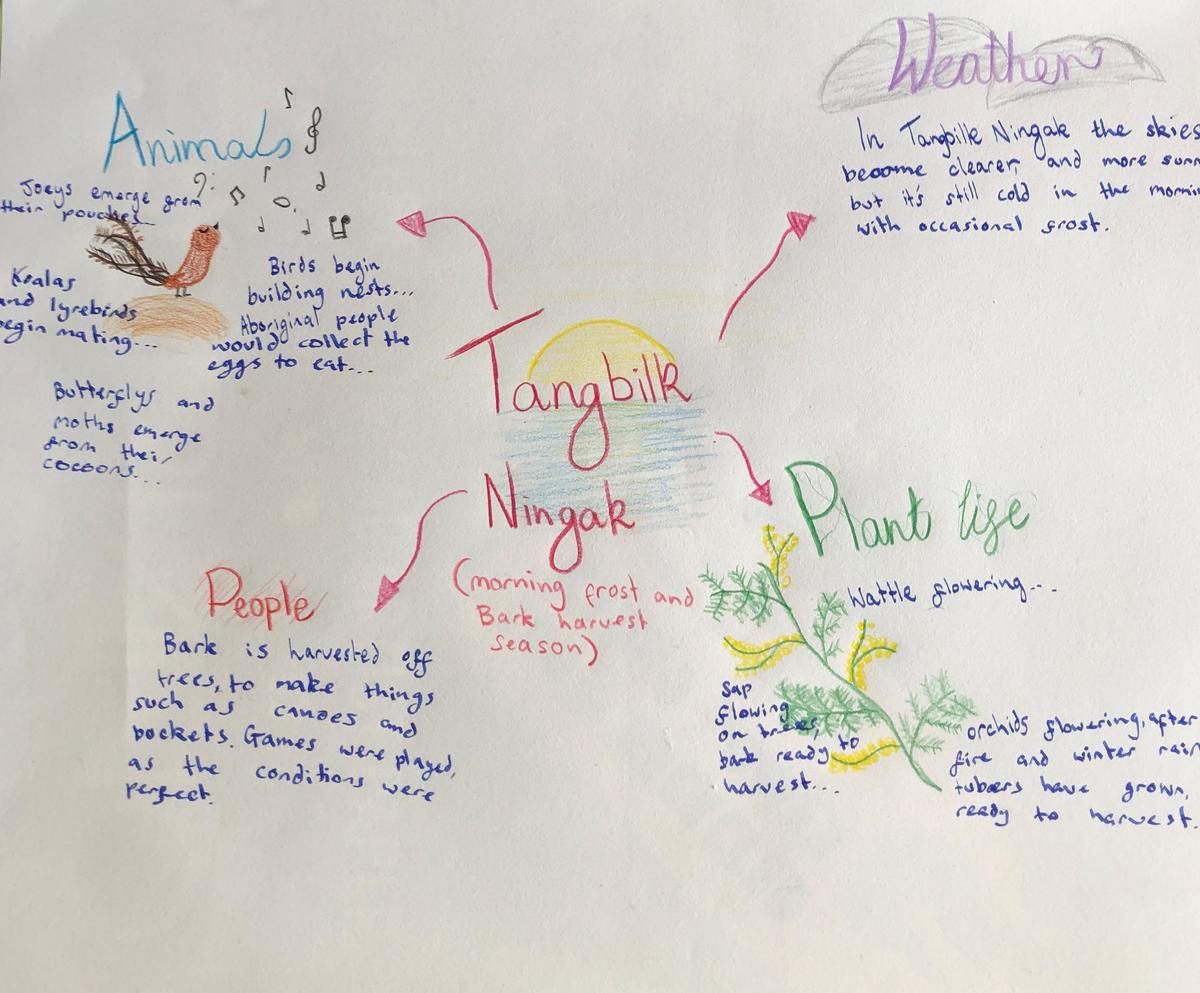 Tangbilk
Ningak
(morning frost and
Bark harvest
season)
Animals
Joeys emerge from
their pouches...
Koalas
and lyrebirds
begin mating...
Birds begin
building nests...
Aboriginal people
would collect the
eggs to eat...
Butterflys and
moths emerge
from their
cocoons...
Weather
In Tangbilk Ningak the skies
become clearer, and more sunn
but it's still cold in the mornin
with occasional frost.
People
Bark is harvested off
trees, to make things
such as canoes and
bockets. Games were played,
as the conditions were
perfect.
Plant life
Wattle flowering...
Sap
flowing
on trees,
bark ready to
harvest...
orchids flowering, after
fire and winter rain
tubers have grown,
ready to harvest.